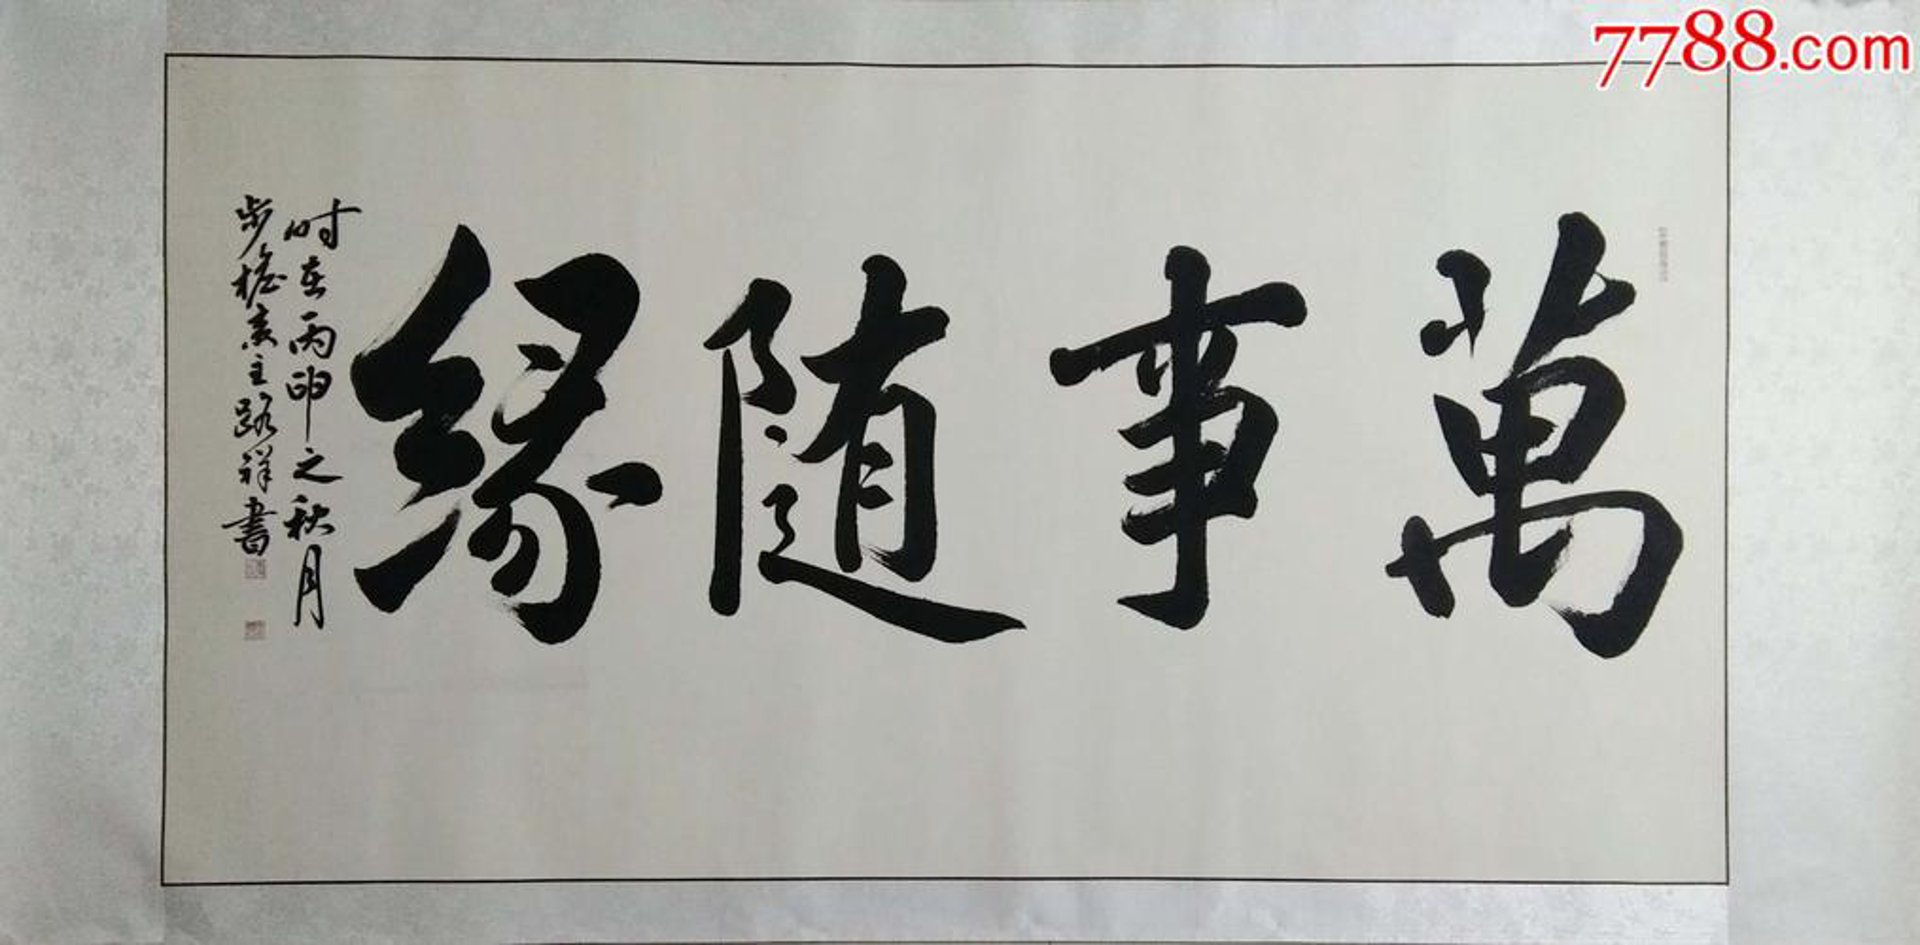 7788.com
萬事随緣
时在丙申之秋月
步檐斋主路祥書